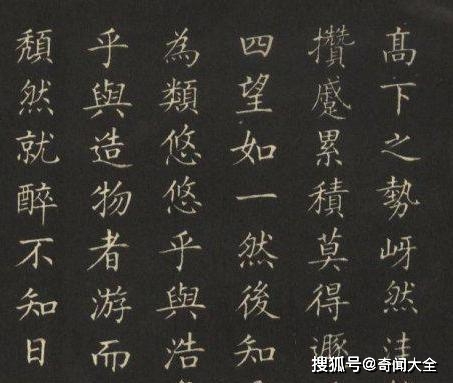 高下之勢岈然洼
攢蹙累積莫得遯
四望如一然後知
為類悠悠乎與浩
乎與造物者游而
頹然就醉不知日
搜狐号@奇闻大全